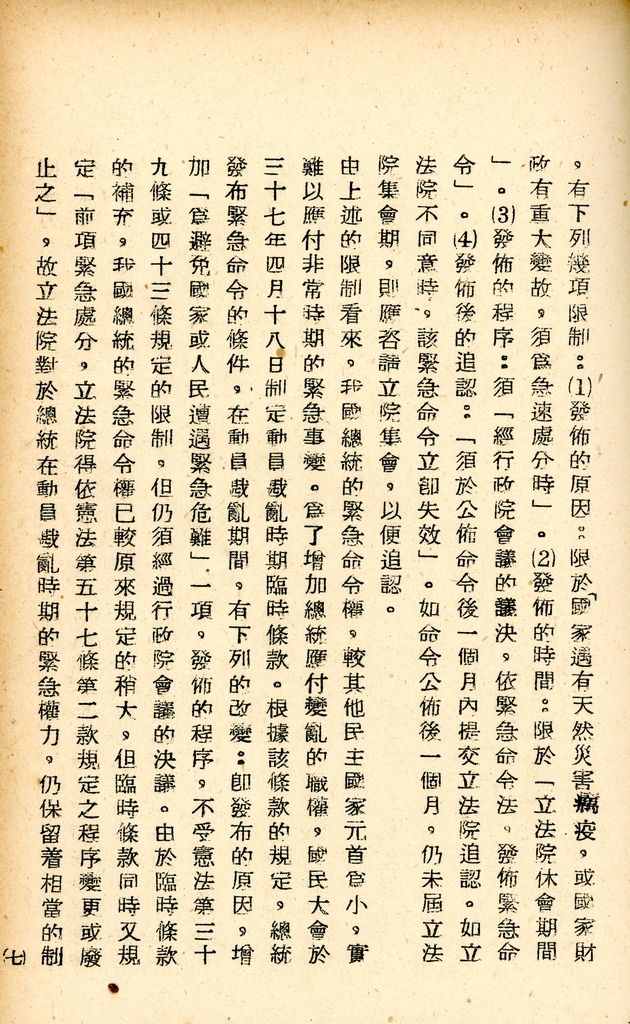 ，有下列幾項限制：⑴發佈的原因：限於「國家遇有天然災害癘疫，或國家財
政有重大變故，須為急速處分時」。⑵發佈的時間：限於「立法院休會期間
」。⑶發佈的程序：須「經行政院會議的議決，依緊急命令法，發佈緊急命
令」。⑷發佈後的追認：「須於公佈命令後一個月內提交立法院追認。如立
法院不同意時，該緊急命令立卽失效」。如命令公佈後一個月，仍未屆立法
院集會期，則應咨請立院集會，以便追認。
由上述的限制看來，我國總統的緊急命令權，較其他民主國家元首為小，實
難以應付非常時期的緊急事變。為了增加總統應付變亂的職權，國民大會於
三十七年四月十八日制定動員戡亂時期臨時條款。根據該條款的規定，總統
發布緊急命令的條件，在動員戡亂期間，有下列的改變：卽發布的原因，增
加「為避免國家或人民遭遇緊急危難」一項，發佈的程序，不受憲法第三十
九條或四十三條規定的限制，但仍須經過行政院會議的決議。由於臨時條款
的補充，我國總統的緊急命令權已較原來規定的稍大，但臨時條款同時又規
定「前項緊急處分，立法院得依憲法第五十七條第二款規定之程序變更或廢
止之」，故立法院對於總統在動員戡亂時期的緊急權力，仍保留着相當的制
(七)